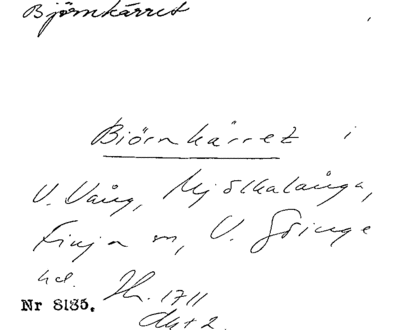 Björnkärret
Biörnkärret i
V. Vång, Mjölkalånga,
Finja sn, V. Göinge
hd. Jb. 1711
Nr 8135.